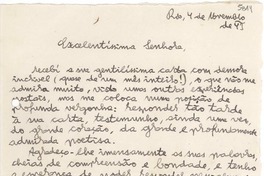 5011
Rio, 4 de Novembro
de 45
Excelentíssima Senhora,
recebi a sua gentilíssima carta com demora
incrível (quase de um mês inteiro!) o que não me
admira muito, vedo umas outras experiências
postais, mas me coloca numa posição de
profunda vergonha: responder tão tarde
à sua carta, testemunho, ainda uma vez,
do grande coração, da grande e profundamente
admirada poetisa.
Agradeço-lhe imensamente as suas palavras,
cheias de compreensão e bondade, e tenho
a esperança de poder